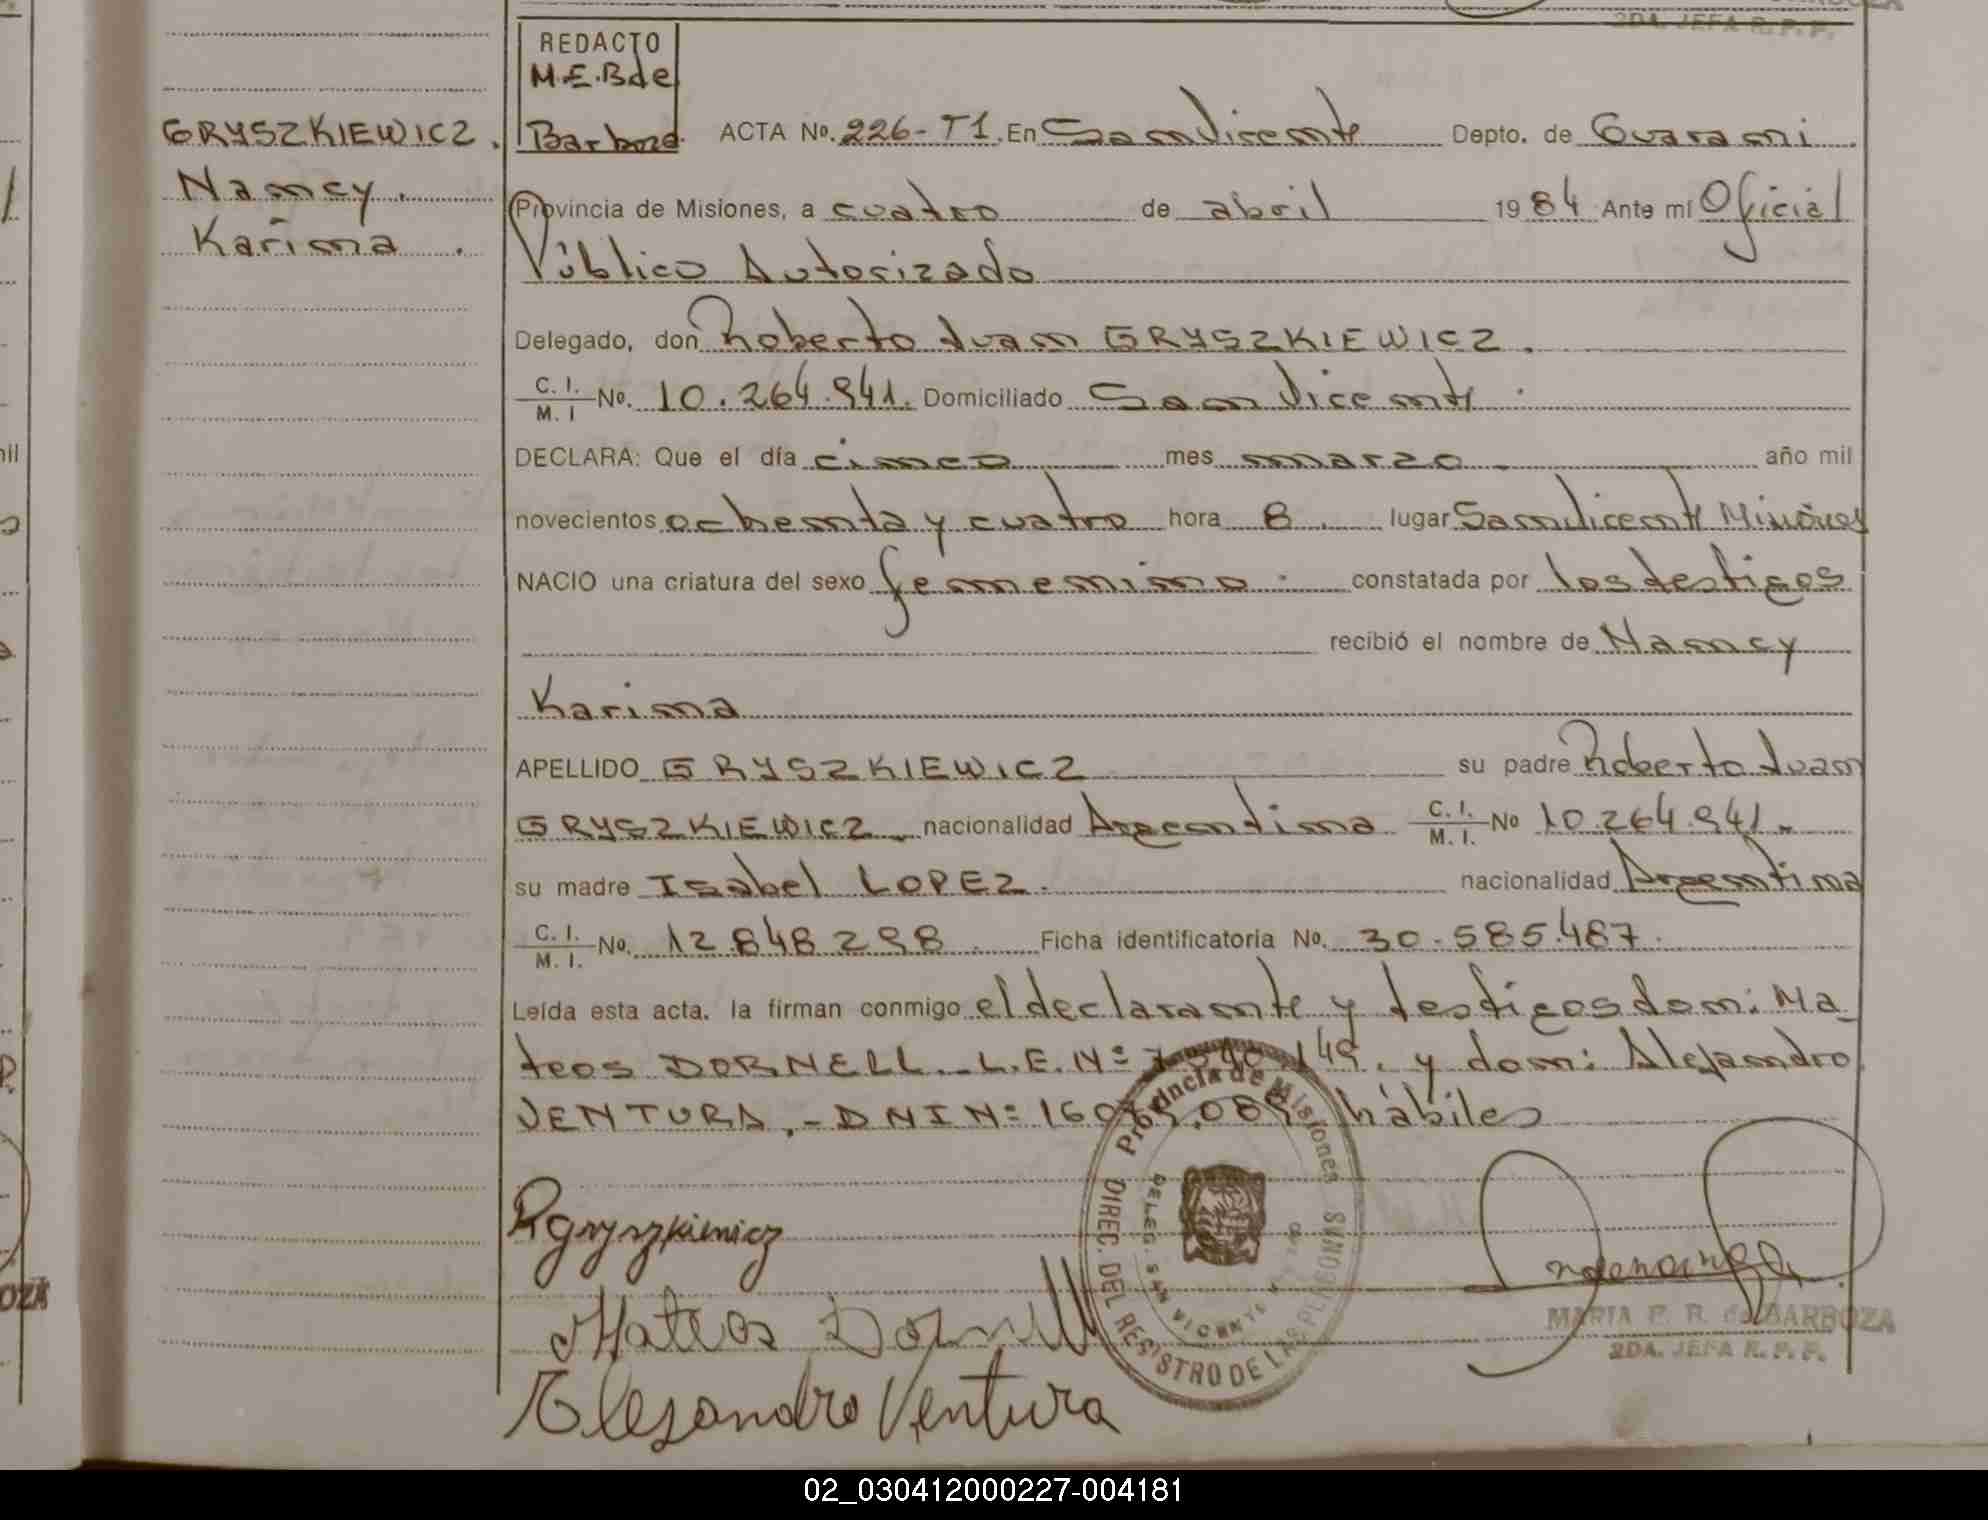 GRYSZKIEWICZ.
Nancy.
Karina.
REDACTO
M.E.B de
Barboza.
ACTA No. 226-T1. En San Vicente Depto. de Guaraní.
Provincia de Misiones, a cuatro de abril 1984 Ante mí Oficial
Público Autorizado
Delegado, don Roberto Juan GRYSZKIEWICZ.
C. I. / M. I No. 10.264.941. Domiciliado San Vicente.
DECLARA: Que el día cinco mes marzo. año mil
novecientos ochenta y cuatro hora 8. lugar San Vicente Misiones
NACIO una criatura del sexo femenino. constatada por los testigos
recibió el nombre de Nancy
Karina
APELLIDO GRYSZKIEWICZ su padre Roberto Juan
GRYSZKIEWICZ nacionalidad Argentina C. I. / M. I. No 10.264.941.
su madre Isabel LOPEZ. nacionalidad Argentina
C. I. / M. I. No. 12.848.298. Ficha identificatoria No. 30.585.487.
Leída esta acta, la firman conmigo el declarante y testigos don: Ma-
teos DORNELL.- L.E. Nº 149. y don: Alejandro
VENTURA.- DNI Nº hábiles
RGryszkiewicz
Mateos Dornell
Alejandro Ventura
Provincia de Misiones
DIREC. DEL REGISTRO DE LAS PERSONAS
DELEG. SAN VICENTE
MARIA E. B. de BARBOZA
2DA. JEFA R.P.P.
2DA. JEFA R.P.P.
02_030412000227-004181